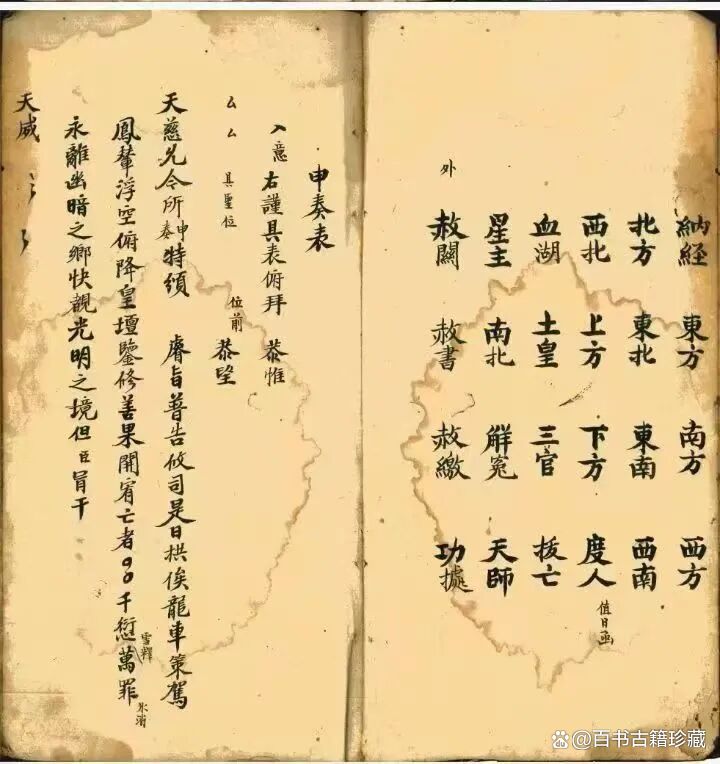 納経 東方 南方 西方
北方 東北 東南 西南
西北 上方 下方 度人 值日函
血湖 土皇 三官 拔亡
星主 南北 解冤 天師
赦關 赦書 赦繳 功據
外
申奏表
入意 右謹具表俯拜 恭惟
厶厶 具聖位 位前 恭望
天慈允令所申奏特頒 睿旨普告攸司是日拱俟龍車策駕
鳳輦浮空俯降皇壇鑒修善果開宥亡者〇〇千愆雪釋萬罪氷消
永離幽暗之鄉快覩光明之境但臣冐干
天威
@百书古籍珍藏